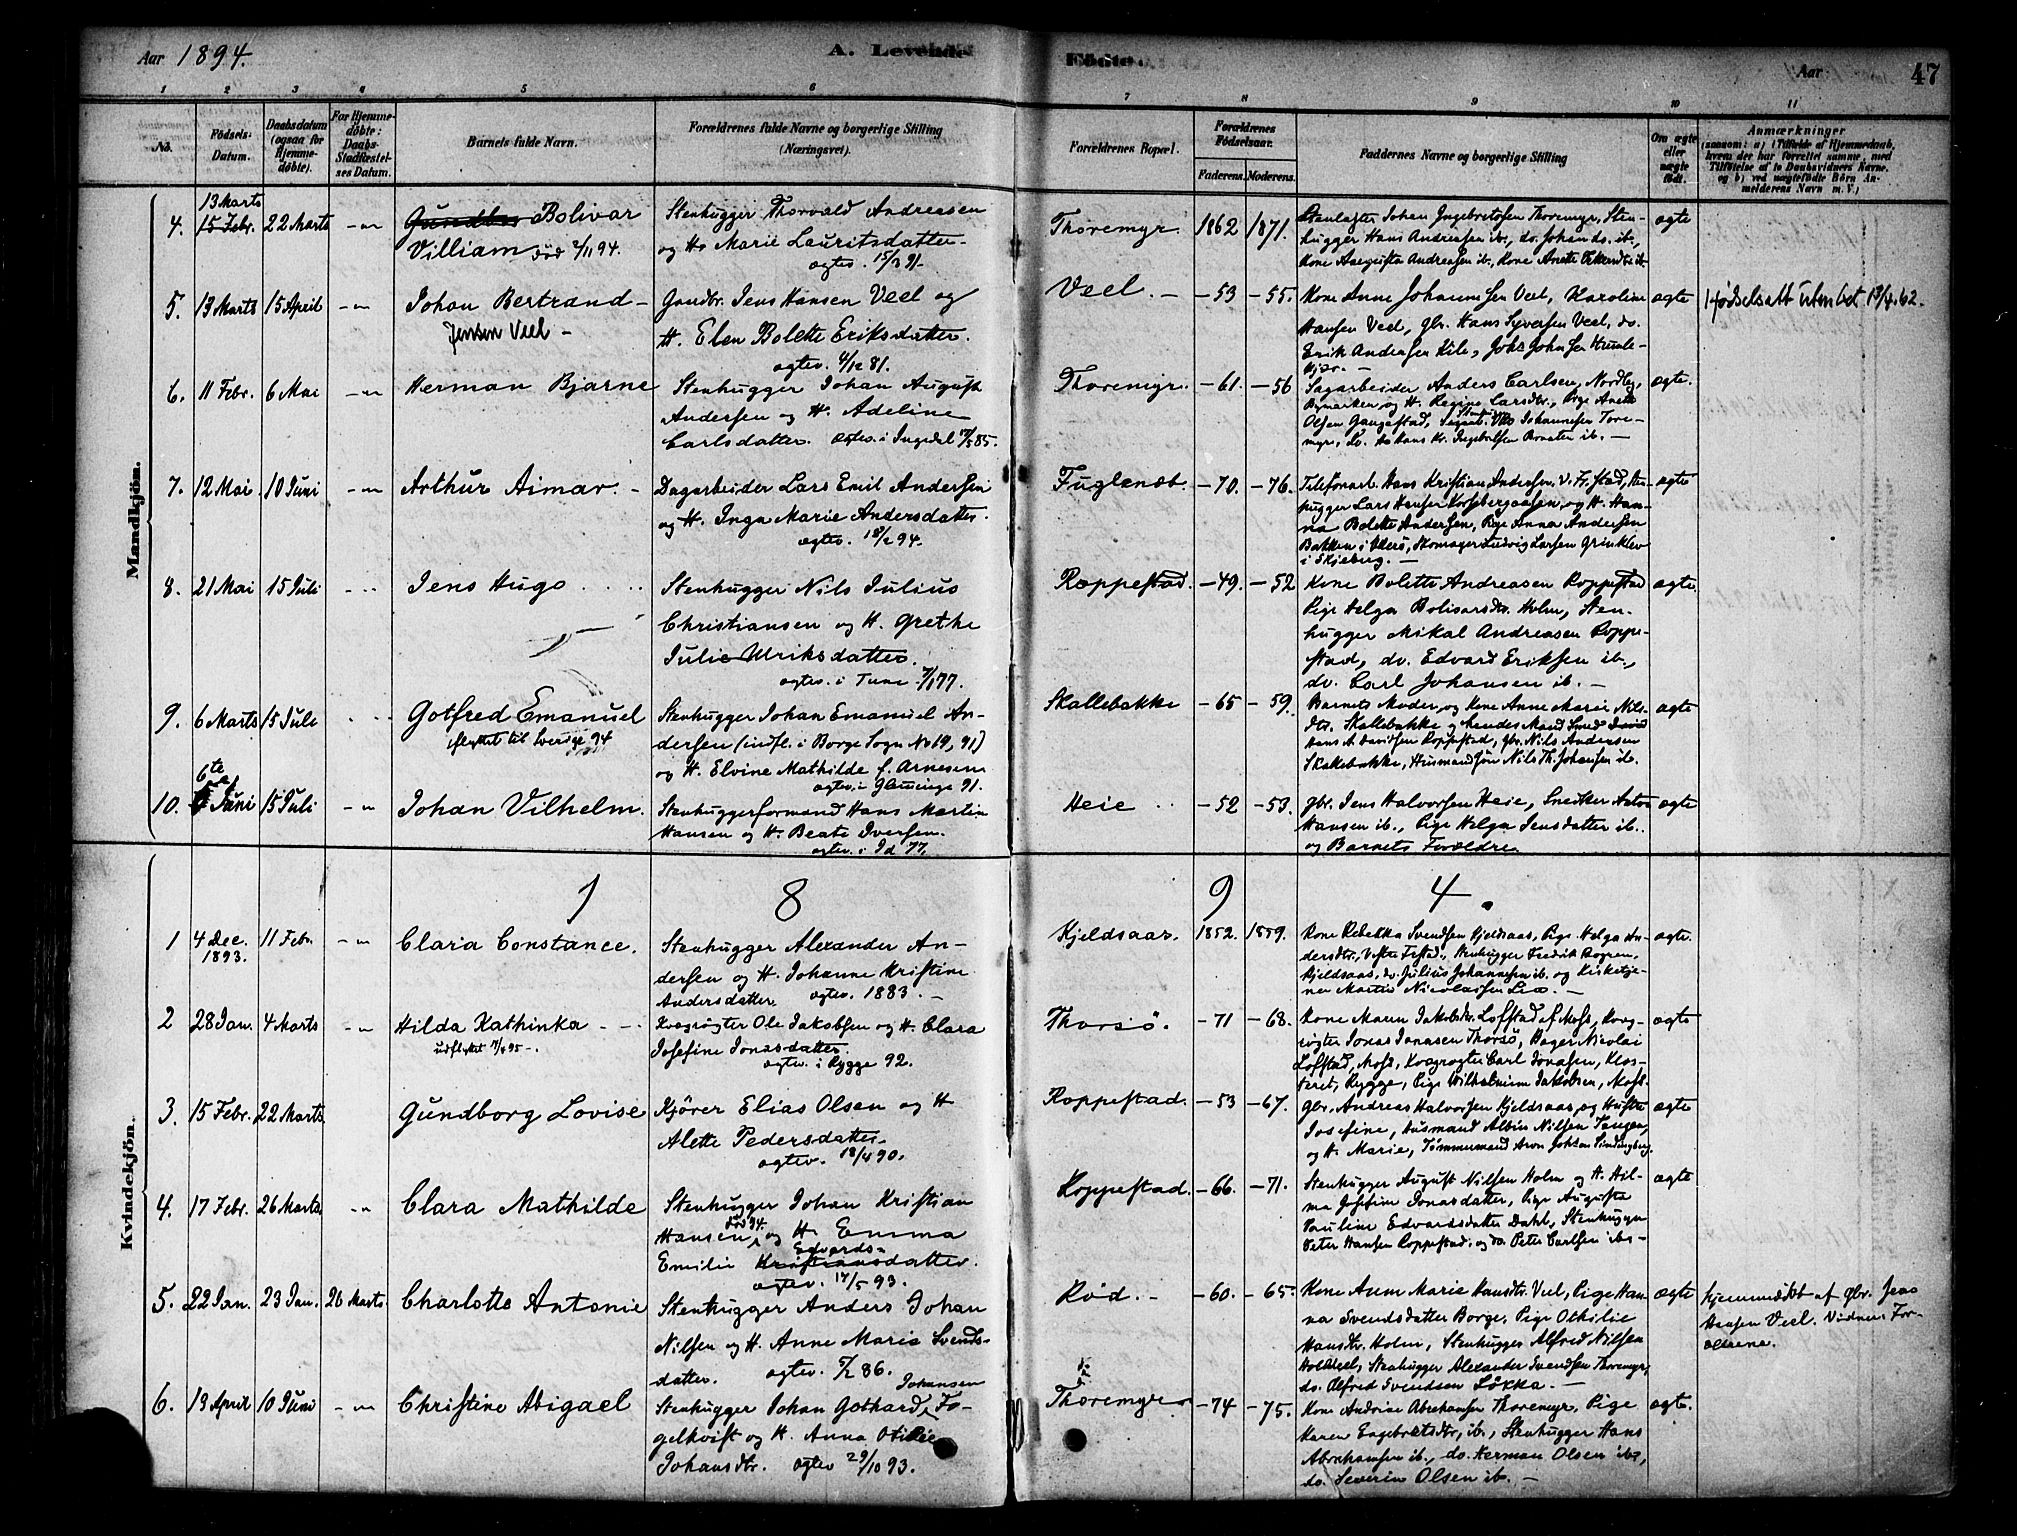 Aar 1894.
A. Levende Födte.
Aar 47
1 2 3 4 5 6 7 8 9 10 11
No.
Födsels-Datum.
Daabsdatum (ogsaa for Hjemmedöbte).
For Hjemmedöbte: Daabs-Stadfæstelses Datum.
Barnets fulde Navn.
Forældrenes fulde Navne og borgerlige Stilling (Næringsvei).
Forældrenes Bopæl.
Forældrenes Födselsaar.
Faderens. Moderens.
Faddernes Navne og borgerlige Stilling
Om ægte eller uægte födt.
Anmærkninger
(saasom: a) i Tilfælde af Hjemmedaab,
hvem der har forrettet samme, med
Tilföielse af to Daabsvidners Navne.
og b) ved uægtefödte Börn An-
melderens Navn m. V.)
Mandkjön.
13 Marts
4. 15 Febr. 22 Marts Bolivar
Villiam död 94.
Stenhugger Thorvald Andreasen
og H. Marie Lauritsdatter
ægtev. 15/3 91.
Thoremyr. 1862 1871.
Johan Ingebretsen Thoremyr, Sten-
hugger Hans Andreasen ib., do. Johan do. ib.,
Kone Augusta Andreasen ib., Kone Anette
ægte
5. 13 Marts 15 April Johan Bertrand
Jensen Veel
Gaardbr. Jens Hansen Veel og
H. Elen Bolette Eriksdatter.
ægtev. 81.
Veel. -53 -55.
Kone Anne Johannesen Veel, Karoline
Hansen Veel, gbr. Hans Syversen Veel, do.
Erik Andersen Kile, Johs Johnsen Humle-
kjær.
ægte
Fødselsatt utmeldt 13/4.62.
6. 11 Febr. 6 Mai Herman Bjarne
Stenhugger Johan August
Andersen og H. Adeline
Carlsdatter. ægtev. i Ingedal 85.
Thoremyr. -61. -56
Sagarbeider Anders Carlsen, Nordby,
Bymarken og H. Regine Larsdtr., Pige Anette
Olsen Johannesen Tore-
myr, ib.
ægte.
7. 12 Mai 10 Juni Arthur Aimar.
Dagarbeider Lars Emil Andersen
og H. Inga Marie Andersdatter.
ægtev. 18/2 94.
Fuglenæb. -70. -76.
Telefonarb. Hans Kristian Andersen V. Fr.stad, Sten-
hugger Lars Hansen og H. Han-
na Bolette Andersen, Pige Anna Andersen
Bakken i Skomager Ludvig Larsen
i Skjeberg.
ægte
8. 21 Mai 15 Juli Jens Hugo
Stenhugger Nils Julius
Christiansen og H. Grethe
Julie Ulriksdatter.
ægtev. i Tune 77.
Roppestad. -49. -52
Kone Bolette Andreasen Roppestad
Pige Helga Holm, Sten-
hugger Mikal Andreasen Roppe-
stad, do. Edvard Eriksen ib.,
do. Carl Johansen ib.
ægte.
9. 6 Marts 15 Juli Gotfred Emanuel
flyttet til Sverige 94
Stenhugger Johan Emanuel An-
dersen (indfl. i Borge Sogn No 19, 91)
og H. Elvine Mathilde f. Arnesen
ægtev. i Glemminge 91.
Skallebakke -65 -59.
Barnets Moder, og Kone Anne Marie Nils-
dtr. Skallebakke, Mand Smed
Hans A. Davidsen Roppestad, gbr. Nils Andreasen
Skallebakke, Husmandssön Nils Th. Johansen do.
ægte
6te
10. Juni 15 Juli Johan Vilhelm.
Stenhuggerformand Hans Martin
Hansen og H. Beate Iversen.
ægtev. i Id 77.
Heie -52 -53.
gbr. Jens Halvorsen Heie, Snedker Anton
Hansen ib., Pige Helga Jensdatter ib.
og Barnets Forældre
ægte
1 8 9 4.
Kvindekjön.
1 4 Dec. 1893. 11 Febr. Clara Constance.
Stenhugger Alexander An-
dersen og H. Johanne Kristine
Andersdatter. ægtev. 1883.
Kjeldsaas. 1852. 1859.
Kone Rebekka Svendsen Kjeldsaas, Pige Helga An-
dersdtr., Stenhugger Fredrik
Kjeldsaas, do. Julius Johannesen ib. og Kirketje-
ner Martin Nicolaisen Lie.
ægte.
2 28 Jan. 4 Marts Hilda Kathinka
udflyttet 95.
Kvægrøgter Ole Jakobsen og H. Clara
Josefine Jonasdatter.
ægtev. i Rygge 92.
Thorsö. -71 -68.
Kone Maren Jakobsdtr. Loffstad af Moss, Kvæg-
røgter Jonas Jonassen Thorsö, Bager Nicolai
Loffstad, Moss, Kvægrøgter Carl Jonasen, Klos-
teret, Rygge, Pige Wilhelmine Jakobsen, Moss.
ægte
3. 15 Febr. 22 Marts Gundborg Lovise
Kjörer Elias Olsen og H
Alette Pedersdatter
ægtev. 18/4 90.
Roppestad. -53 -67.
Gbr. Andreas Halvorsen Kjeldsaas og Hustru
Josefine, Husmand Albin Nilsen Tangen,
og H. Marie, Tømmermand Aron Johsen
ægte
4. 17 Febr. 26 Marts Clara Mathilde
Stenhugger Johan Kristian
Hansen död 94. og H Emma
Emilie Edvards-datter.
ægtev. 17/5 93.
Roppestad. -66. -71.
Stenhugger August Nilsen Holm og H. Hil-
ma Josefine Jonasdatter, Pige Augusta
Pauline Edvardsdatter Dahl, Stenhugger
Peter Hansen Roppestad, og do Peter Carlsen ibs.
ægte
5. 22 Jan. 23 Jan. 26 Marts. Charlotte Antonie
Stenhugger Anders Johan
Nilsen og H. Anne Marie Svends-
datter. ægtev. 86.
Röd. -60. -65.
Kone Anne Marie Hansdtr. Veel, Pige Han-
na Svendsdatter Borge, Pige Othilie
Hansdtr. Holm, Stenhugger Alfred Nilsen
Stenhugger Alexander Svendsen Thoremyr,
do. Alfred Svendsen Lökka.
ægte
Hjemmedöbt af gbr. Jens
Hansen Veel. Vidner: For-
ældrene.
6. 13 April 10 Juni Christine Abigael
Stenhugger Johan Gothard Johansen Fo-
gelkvist og H. Anna Otilie
Johansdtr. ægtev 29/10 93.
Thoremyr -74 -75.
Kone Andrine Abrahamsen Thoremyr, Pige
Karen Engebretsdtr, ib., Stenhugger Hans
Abrahamsen ib., do. Herman Olsen ibs,
do. Severin Olsen ib.
ægte.